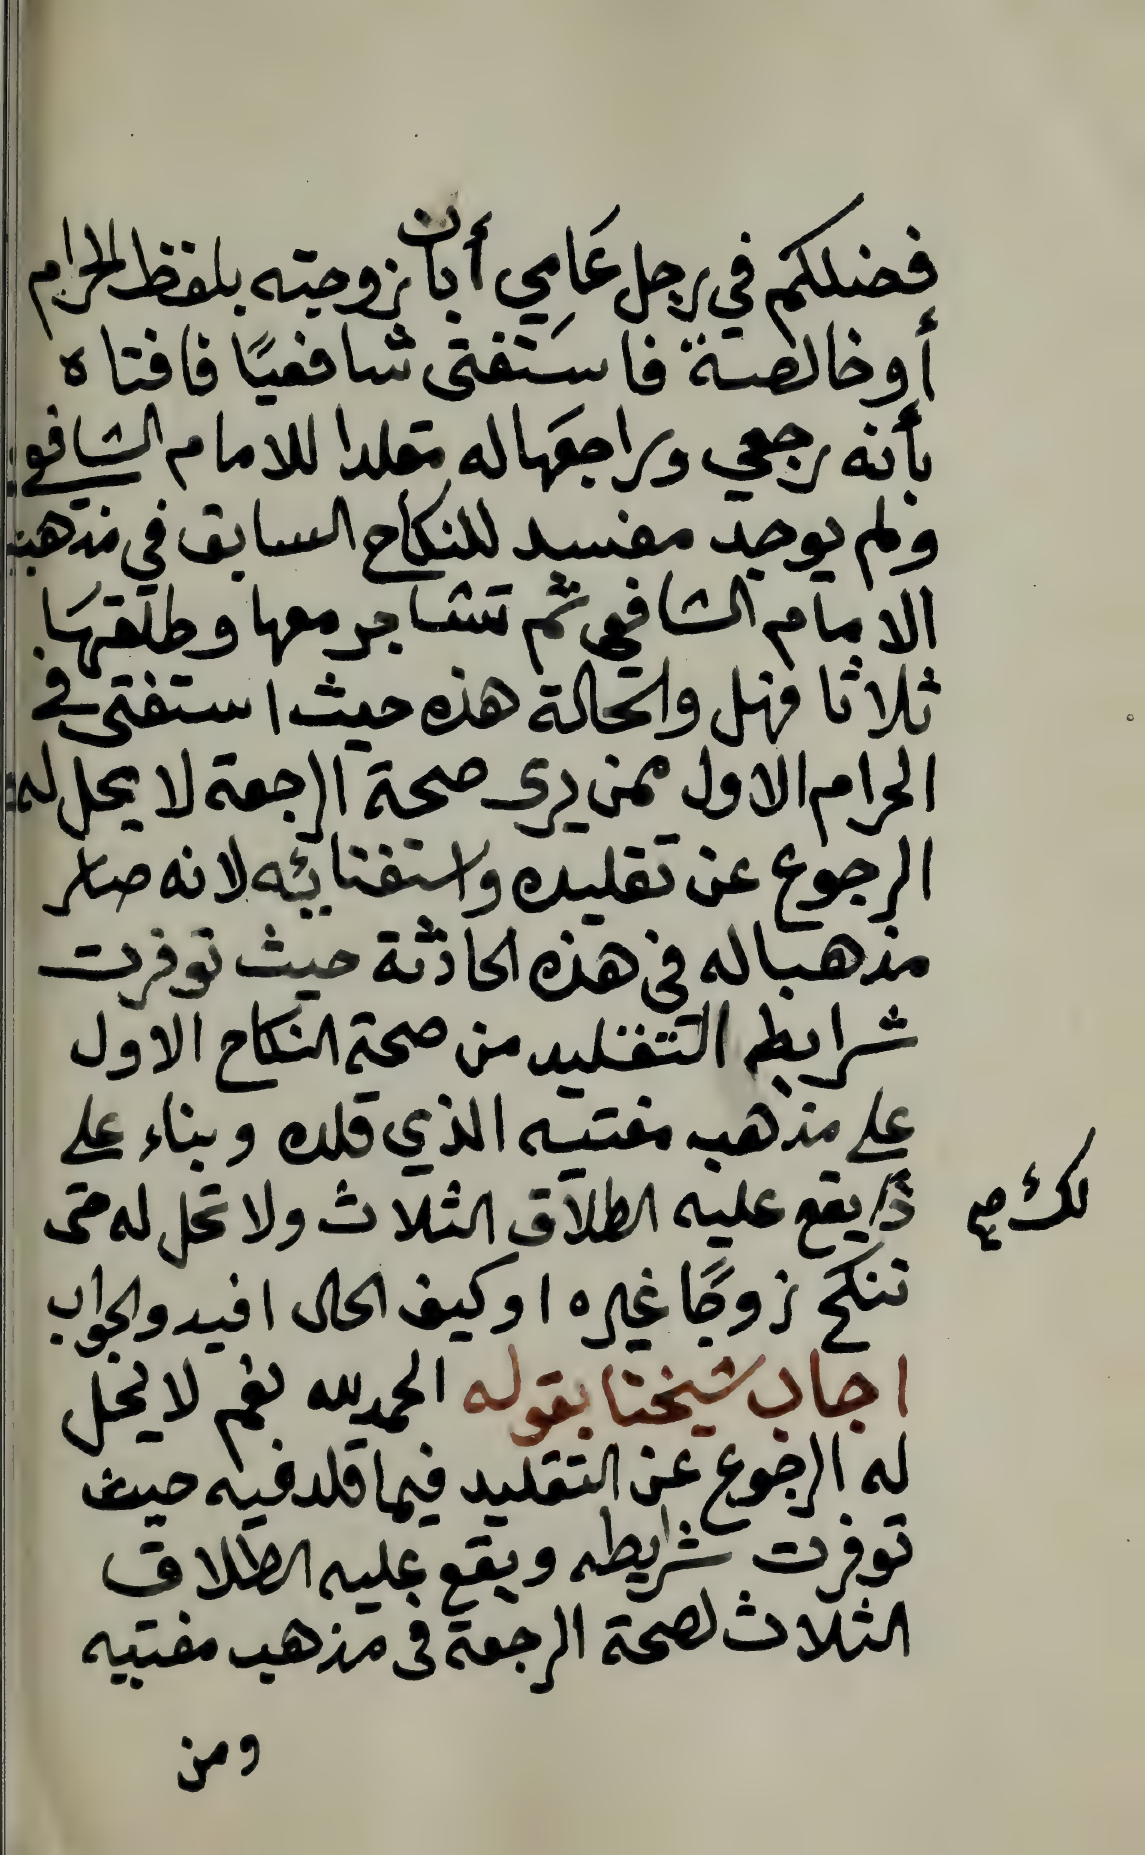 فضلكم في رجل عَامِي أبان زوجته بلفظ الحرام
أو خالصة فاستَفتى شافعيًا فافتاه
بأنه رجعي وراجعَها له مقلدا للامام الشافعي
ولم يوجد مفسد للنكاح السابق في مذهب
الامام الشافعي ثم تشاجر معها وطلّقهَا
ثلاثا فهل والحالة هذه حيث استفتى في
الحرام الاول ممن يرى صحة الرجعة لا يحل له
الرجوع عن تقليده واستفتائه لانه صار
مذهبا له في هذه الحادثة حيث توفرت
شرايط التقليد من صحة النكاح الاول
على مذهب مفتيه الذي قلده وبناء على
ذا يقع عليه الطلاق الثلاث ولا تحل له حتى
لك صح
تنكح زوجًا غيره او كيف الحال افيدوا لجواب
اجاب شيخنا بقوله الحمد لله نعم لا يحل
له الرجوع عن التقليد فيما قلد فيه حيث
توفرت شرايطه ويقع عليه الطلاق
الثلاث لصحة الرجعة في مذهب مفتيه
ومن